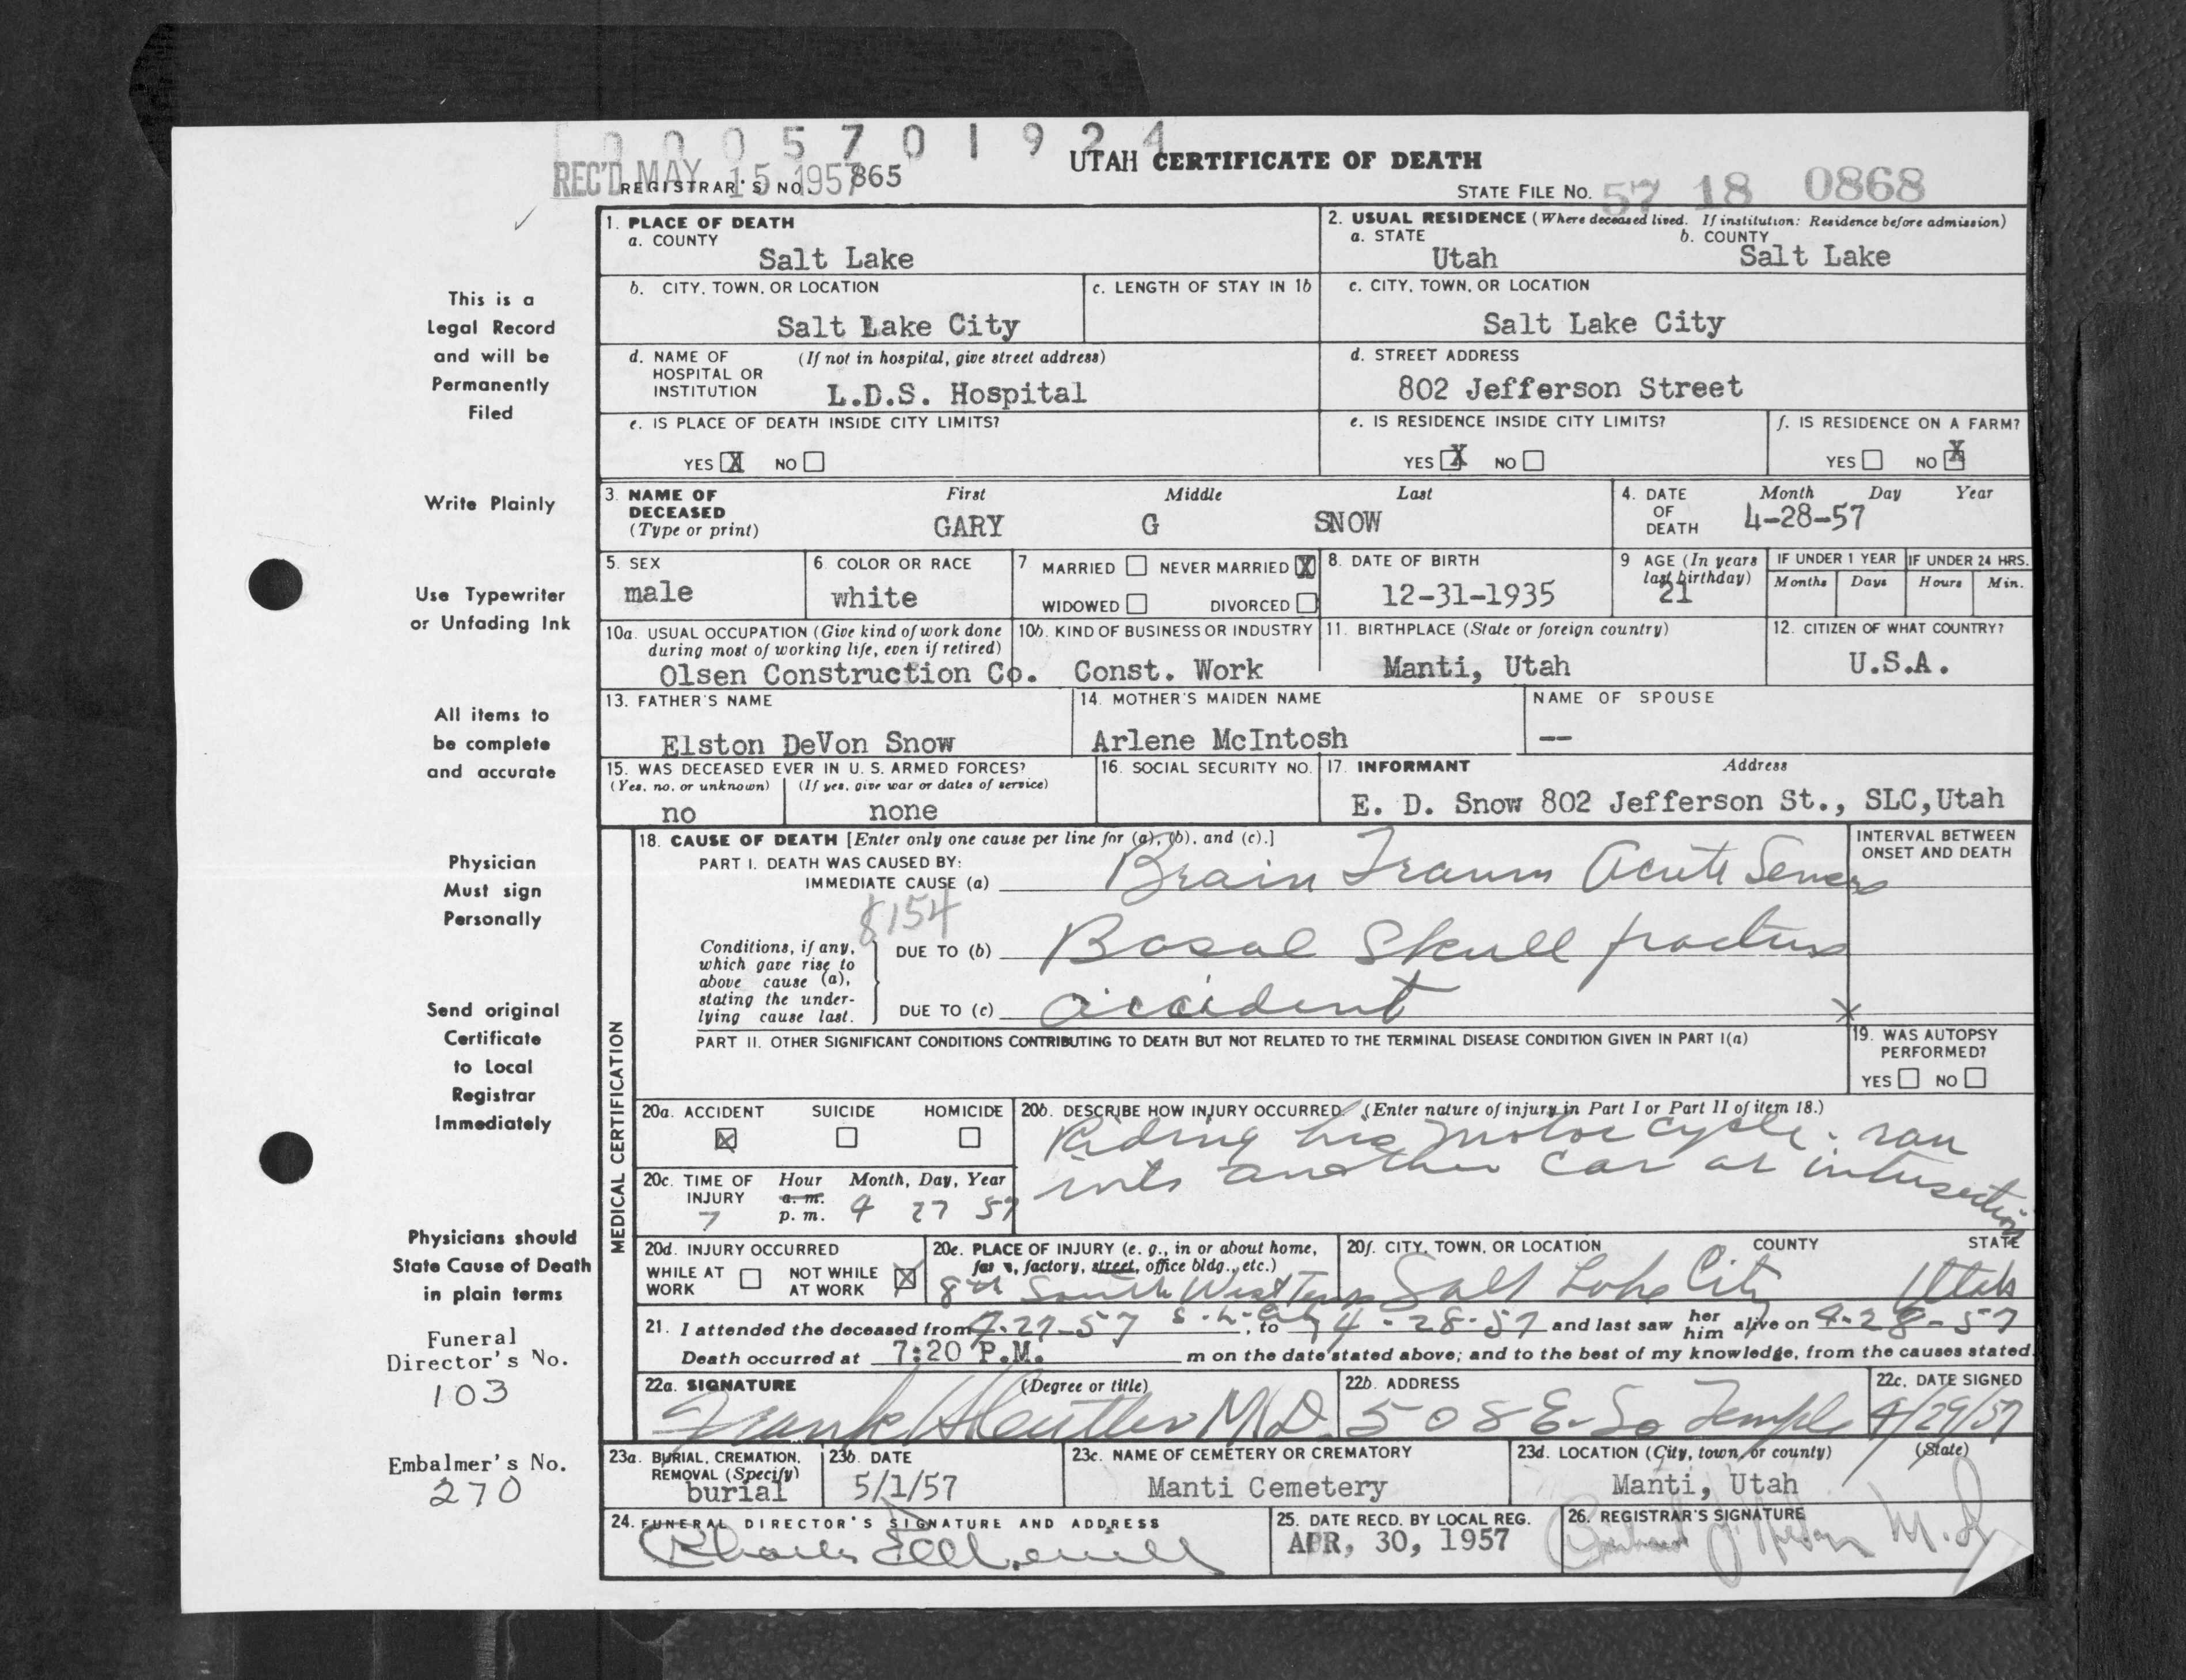 0 0 0 5 7 0 1 9 2 4
UTAH CERTIFICATE OF DEATH
REC'D MAY 15 1957
REGISTRAR'S NO. 865
STATE FILE NO. 57 18 0868
This is a
Legal Record
and will be
Permanently
Filed
Write Plainly
Use Typewriter
or Unfading Ink
All items to
be complete
and accurate
Physician
Must sign
Personally
Send original
Certificate
to Local
Registrar
Immediately
Physicians should
State Cause of Death
in plain terms
Funeral
Director's No.
103
Embalmer's No.
270
1. PLACE OF DEATH
a. COUNTY
Salt Lake
2. USUAL RESIDENCE (Where deceased lived. If institution: Residence before admission)
a. STATE b. COUNTY
Utah Salt Lake
b. CITY, TOWN, OR LOCATION
Salt Lake City
c. LENGTH OF STAY IN 1b
c. CITY, TOWN, OR LOCATION
Salt Lake City
d. NAME OF (If not in hospital, give street address)
HOSPITAL OR
INSTITUTION L.D.S. Hospital
d. STREET ADDRESS
802 Jefferson Street
e. IS PLACE OF DEATH INSIDE CITY LIMITS?
YES X NO
e. IS RESIDENCE INSIDE CITY LIMITS?
YES X NO
f. IS RESIDENCE ON A FARM?
YES NO X
3. NAME OF First Middle Last
DECEASED
(Type or print) GARY G SNOW
4. DATE Month Day Year
OF
DEATH 4-28-57
5. SEX
male
6. COLOR OR RACE
white
7 MARRIED NEVER MARRIED X
WIDOWED DIVORCED
8. DATE OF BIRTH
12-31-1935
9 AGE (In years
last birthday)
21
IF UNDER 1 YEAR
Months Days
IF UNDER 24 HRS.
Hours Min.
10a. USUAL OCCUPATION (Give kind of work done
during most of working life, even if retired)
Olsen Construction Co.
10b. KIND OF BUSINESS OR INDUSTRY
Const. Work
11. BIRTHPLACE (State or foreign country)
Manti, Utah
12. CITIZEN OF WHAT COUNTRY?
U.S.A.
13. FATHER'S NAME
Elston DeVon Snow
14. MOTHER'S MAIDEN NAME
Arlene McIntosh
NAME OF SPOUSE
--
15. WAS DECEASED EVER IN U. S. ARMED FORCES?
(Yes, no, or unknown) (If yes, give war or dates of service)
no none
16. SOCIAL SECURITY NO.
17. INFORMANT Address
E. D. Snow 802 Jefferson St., SLC,Utah
MEDICAL CERTIFICATION
18. CAUSE OF DEATH [Enter only one cause per line for (a), (b), and (c).]
PART I. DEATH WAS CAUSED BY:
IMMEDIATE CAUSE (a) Brain Trauma Acute Severe
8154
Conditions, if any,
which gave rise to
above cause (a),
stating the under-
lying cause last.
DUE TO (b) Basal Skull fracture
DUE TO (c) accident
INTERVAL BETWEEN
ONSET AND DEATH
X
PART II. OTHER SIGNIFICANT CONDITIONS CONTRIBUTING TO DEATH BUT NOT RELATED TO THE TERMINAL DISEASE CONDITION GIVEN IN PART I(a)
19. WAS AUTOPSY
PERFORMED?
YES NO
20a. ACCIDENT SUICIDE HOMICIDE
X
20b. DESCRIBE HOW INJURY OCCURRED. (Enter nature of injury in Part I or Part II of item 18.)
Riding his motor cycle - ran
into another car at intersection
20c. TIME OF Hour Month, Day, Year
INJURY a. m.
7 p. m. 4 27 57
20d. INJURY OCCURRED
WHILE AT WORK NOT WHILE AT WORK X
20e. PLACE OF INJURY (e. g., in or about home,
farm, factory, street, office bldg., etc.)
8th South West Temp
S.L. City
20f. CITY, TOWN, OR LOCATION COUNTY STATE
Salt Lake City Utah
21. I attended the deceased from 4-27-57, to 4-28-57 and last saw her him alive on 4-28-57
Death occurred at 7:20 P.M. m on the date stated above; and to the best of my knowledge, from the causes stated.
22a. SIGNATURE (Degree or title)
Frank M.D.
22b. ADDRESS
508 E. So Temple
22c. DATE SIGNED
4/29/57
23a. BURIAL, CREMATION,
REMOVAL (Specify)
burial
23b. DATE
5/1/57
23c. NAME OF CEMETERY OR CREMATORY
Manti Cemetery
23d. LOCATION (City, town, or county) (State)
Manti, Utah
24. FUNERAL DIRECTOR'S SIGNATURE AND ADDRESS
25. DATE RECD. BY LOCAL REG.
APR, 30, 1957
26. REGISTRAR'S SIGNATURE
M.D.